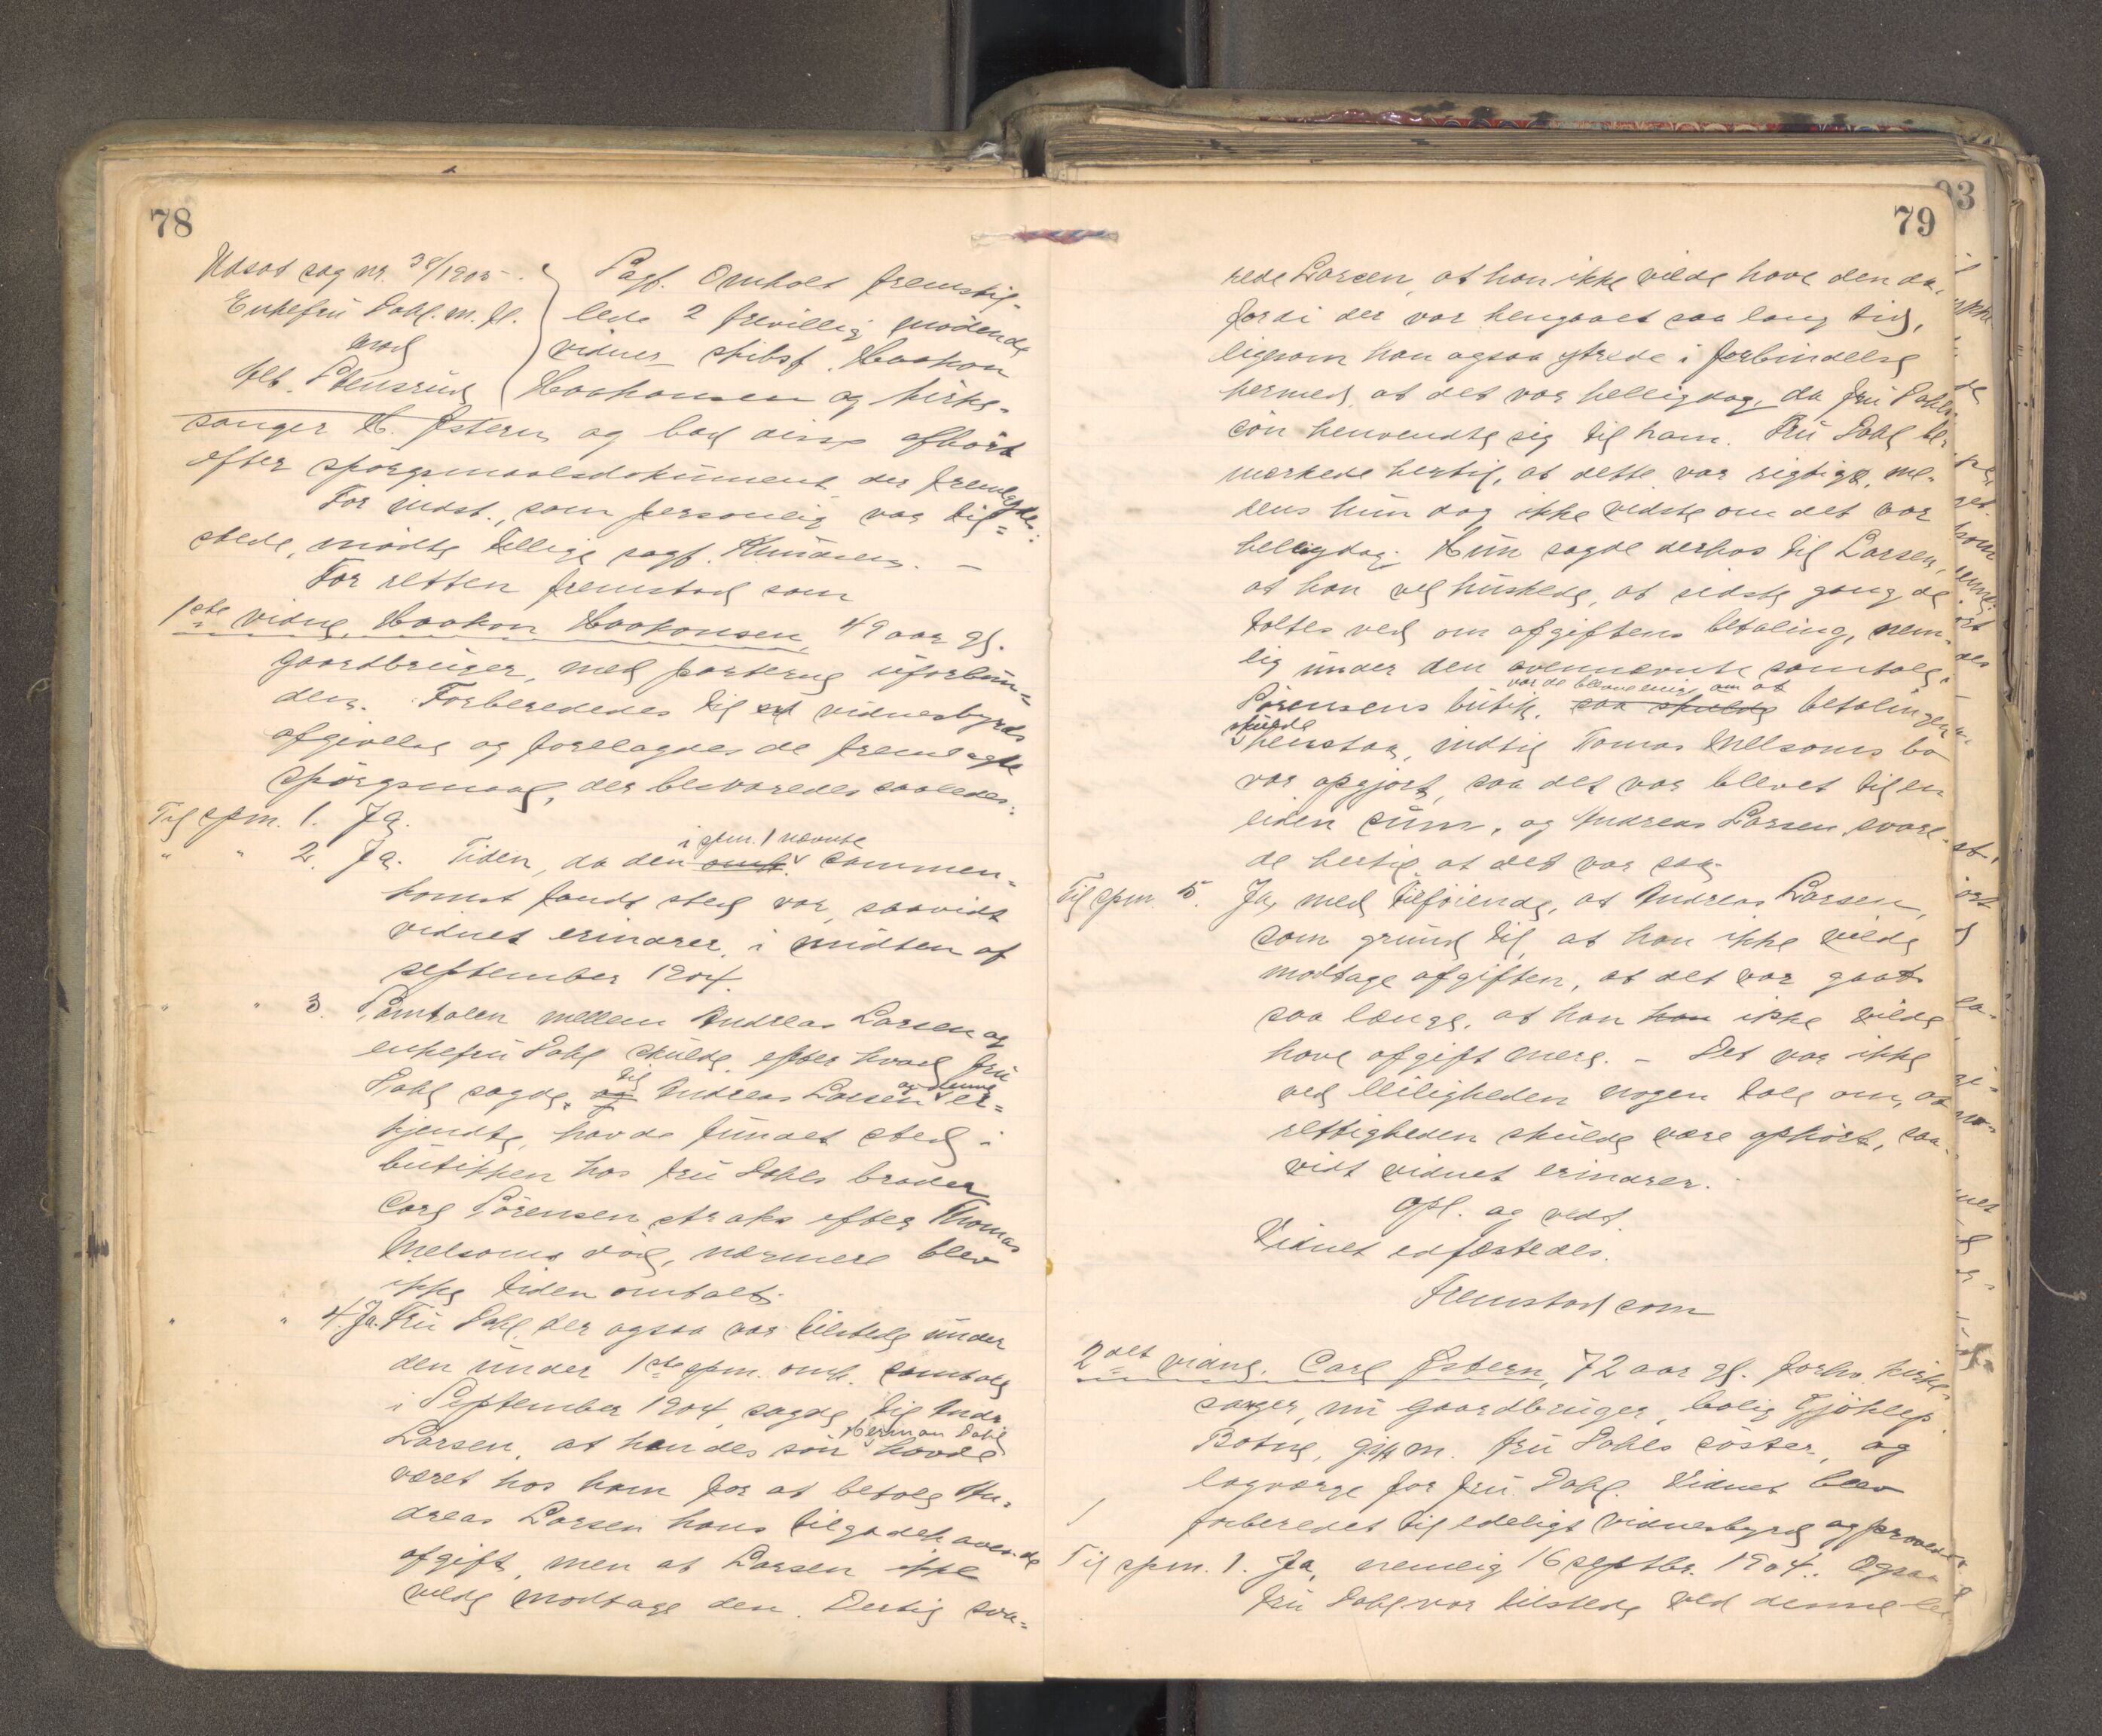 78
Udsat sag nr. 38/1905
Enkefru Dahl m. fl.
mod
Stensrud
Sagf. Omholt fremstil-
lede 2 frivillig mødende
vidner skibsf. Haakon
Haakonsen og kirke-
sanger H. Østern og bad disse afhørt
efter spørgsmaalsdokument der fremlagdes.
For indst., som personlig var til-
stede, mødte tillige sagf. Knudsen. –
For retten fremstod som
1ste vidne, Haakon Haakonsen, 49 aar gl.
gaardbruger, med parterne uforbun-
den. Forberededes til sit vidnesbyrds
afgivelse og forelagdes de fremlagte
spørgsmaal, der besvaredes saaledes:
Til spm. 1. Ja.
" " 2. Ja. Tiden, da den omh. i spm. 1 nævnte sammen-
komst fandt sted var, saavidt
vidnet erindrer, i midten af
september 1904.
" " 3. Samtalen mellem Andreas Larsen og
enkefru Dahl skulde, efter hvad fru
Dahl sagde, og til Andreas Larsen og denne er-
kjendte, havde fundet sted i
butikken hos fru Dahls broder
Carl Sørensen straks efter Thomas
Melsoms død, nærmere blev
ikke tiden omtalt.
" " 4. Ja. Fru Dahl, der ogsaa var tilstede under
den under 1ste spm. omh. samtale
i September 1904, sagde til Andr.
Larsen, at hendes søn Herman Dahl havde
været hos ham for at betale An-
dreas Larsen hans tilgodehavende
afgift, men at Larsen ikke
vilde modtage den. Dertil sva-
79
rede Larsen, at han ikke vilde have den da,
fordi der var hengaaet saa lang tid,
ligesom han ogsaa ytrede i forbindelse
hermed, at det var helligdag, da fru Dahls
søn henvendte sig til ham. Fru Dahl be-
mærkede hertil, at dette var rigtigt, me-
dens hun dog ikke vidste om det var
helligdag. Hun sagde derhos til Larsen,
at han vel huskede, at sidste gang de
taltes ved om afgiftens betaling, nem-
lig under den ovennævnte samtale i
Sørensens butik, saa skulde var de blevne enige om at betalingen
skulde henstaa, indtil Tomas Melsoms bo
var opgjort, saa det var blevet til en
liden sum, og Andreas Larsen svare-
de hertil at det var saa.
Til spm. 5. Ja, med tilføiende, at Andreas Larsen,
som grund til, at han ikke vilde
modtage afgiften, at det var gaat
saa længe, at han han ikke vilde
have afgift mere. – Det var ikke
ved leiligheden nogen tale om, at
rettigheden skulde være ophørt, saa-
vidt vidnet erindrer.
Opl. og vedt.
Vidnet edfæstedes.
Fremstod som
2det vidne. Carl Østern, 72 aar gl. forhv. kirke-
sanger, nu gaardbruger, bolig Gjøklep
Botne, gift m. fru Dahls søster, og
lagværge for fru Dahl. Vidnet blev
forberedet til edeligt vidnesbyrd og provede:
Til spm. 1. Ja, nemlig 16 septbr. 1904. Ogsaa
fru Dahl var tilstede ved denne lei
93